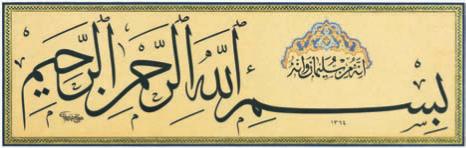 إنه من سليمان وإنه
بِسْمِ اللهِ الرَّحْمٰنِ الرَّحِيمِ
١٣٦٤